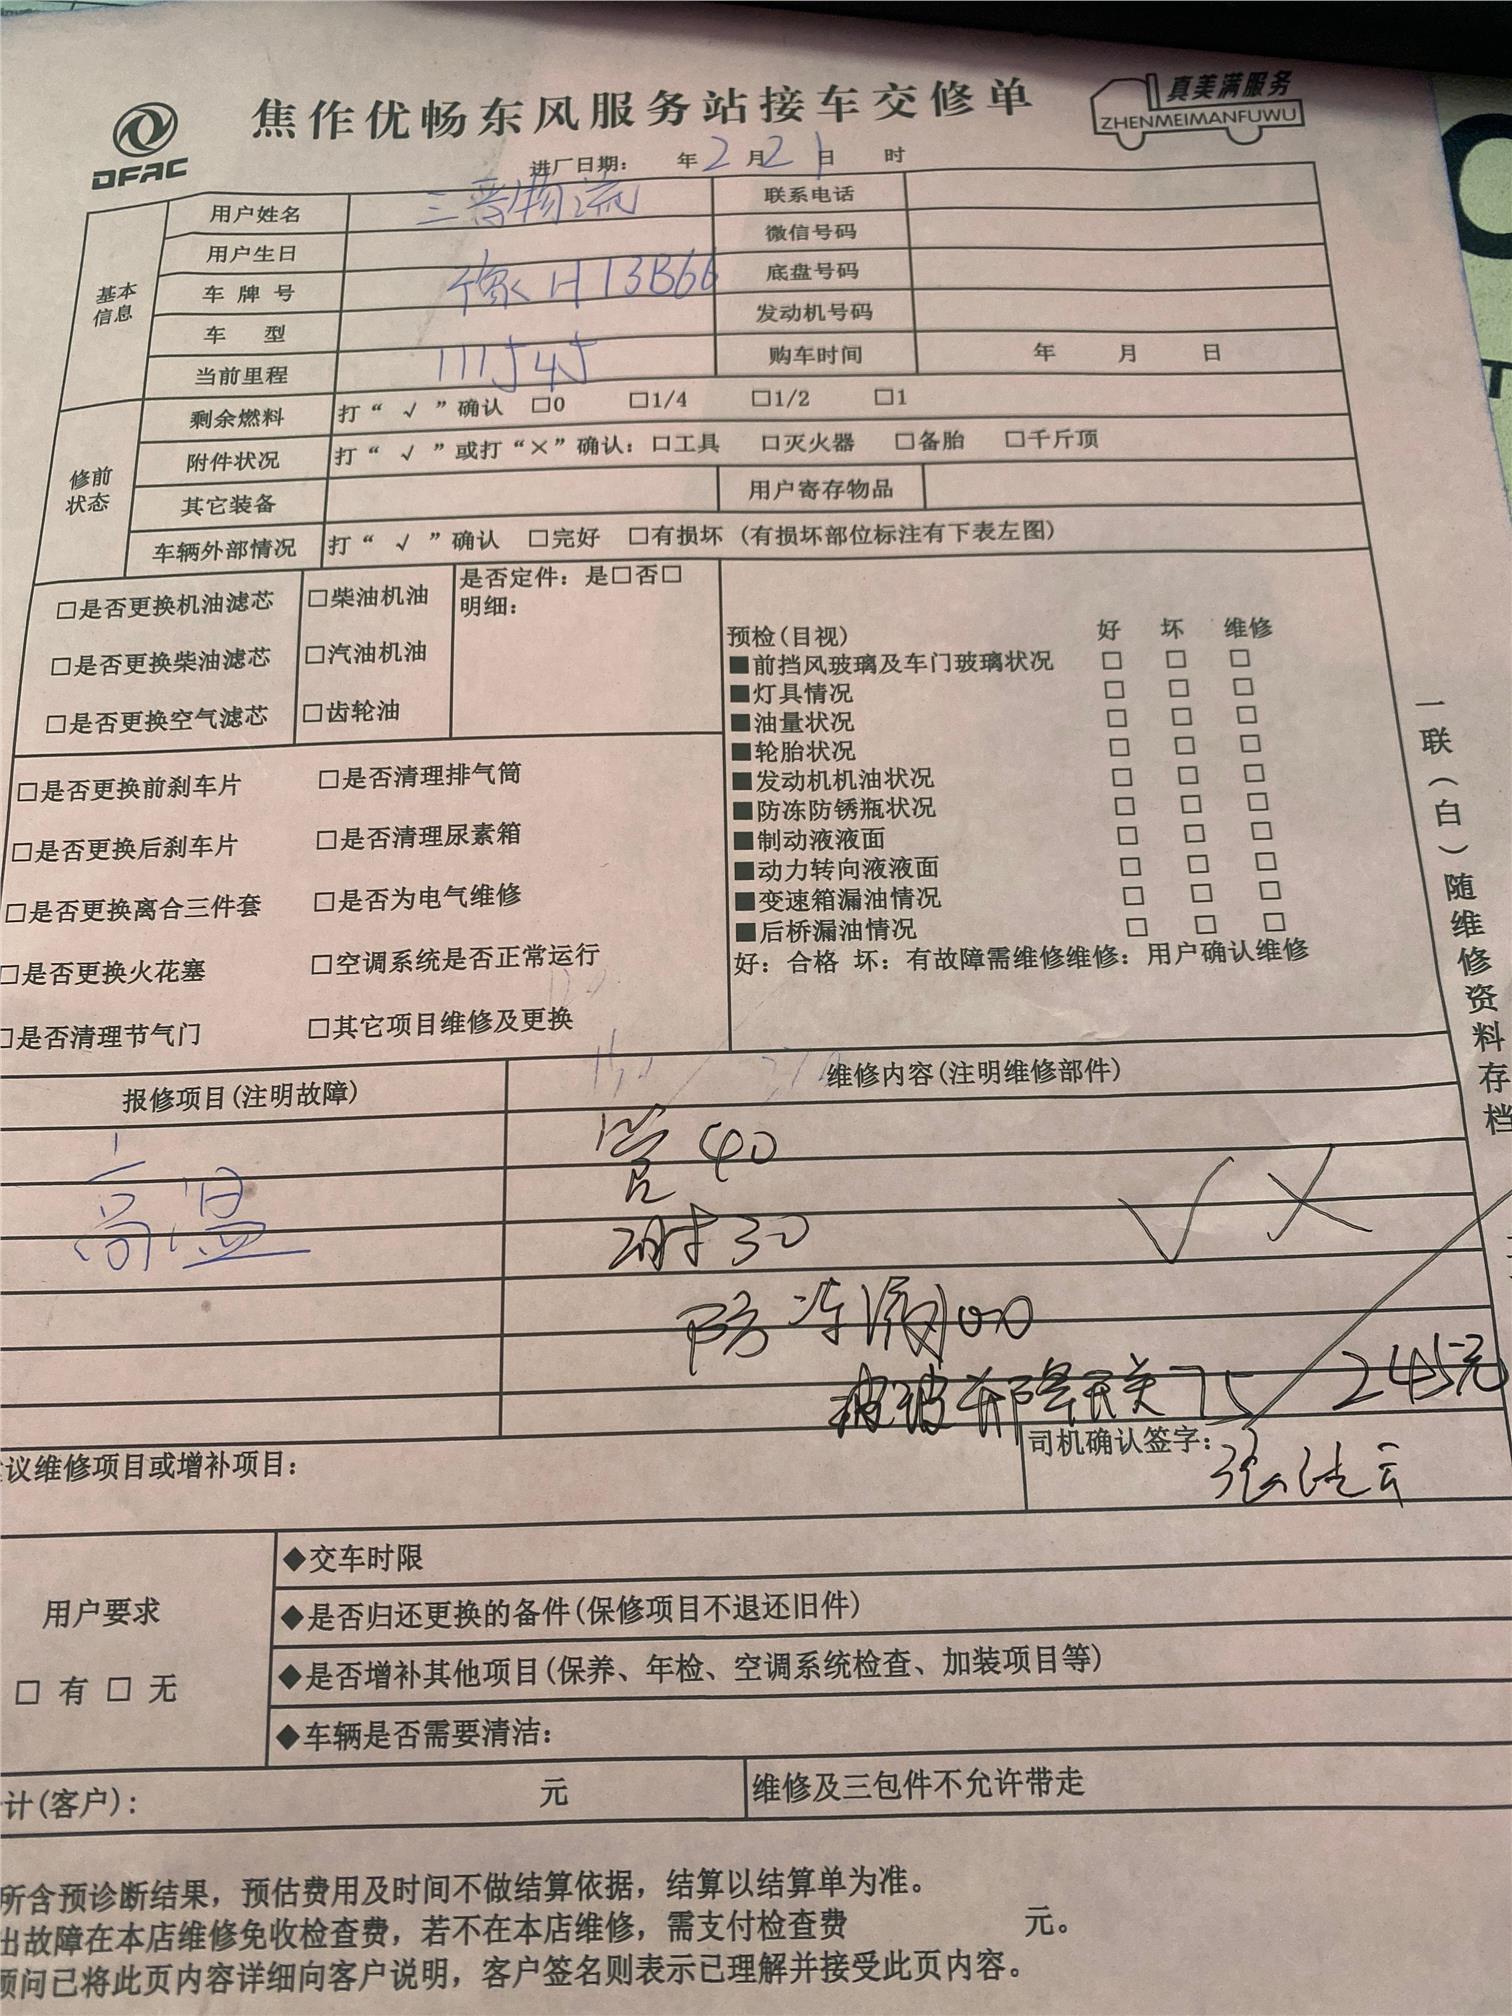 DFAC
焦作优畅东风服务站接车交修单
真美满服务
ZHENMEIMANFUWU
进厂日期： 年 2 月 21 日 时
基本信息
用户姓名 三普物流 联系电话
用户生日 微信号码
车牌号 豫H13B66 底盘号码
车 型 发动机号码
当前里程 购车时间 年 月 日
修前状态
剩余燃料 打“√”确认 □0 □1/4 □1/2 □1
附件状况 打“√”或打“×”确认：□工具 □灭火器 □备胎 □千斤顶
其它装备 用户寄存物品
车辆外部情况 打“√”确认 □完好 □有损坏 (有损坏部位标注有下表左图)
□是否更换机油滤芯 □柴油机油
□是否更换柴油滤芯 □汽油机油
□是否更换空气滤芯 □齿轮油
是否定件：是□否□
明细：
□是否更换前刹车片 □是否清理排气筒
□是否更换后刹车片 □是否清理尿素箱
□是否更换离合三件套 □是否为电气维修
□是否更换火花塞 □空调系统是否正常运行
□是否清理节气门 □其它项目维修及更换
预检(目视) 好 坏 维修
■前挡风玻璃及车门玻璃状况 □ □ □
■灯具情况 □ □ □
■油量状况 □ □ □
■轮胎状况 □ □ □
■发动机机油状况 □ □ □
■防冻防锈瓶状况 □ □ □
■制动液液面 □ □ □
■动力转向液液面 □ □ □
■变速箱漏油情况 □ □ □
■后桥漏油情况 □ □ □
好：合格 坏：有故障需维修维修：用户确认维修
一联（白）随维修资料存档
报修项目(注明故障) 维修内容(注明维修部件)
高温
管 40
30
防冻液
玻璃升降开关 75 245元
议维修项目或增补项目：
司机确认签字：
用户要求
□ 有 □ 无
◆交车时限
◆是否归还更换的备件(保修项目不退还旧件)
◆是否增补其他项目(保养、年检、空调系统检查、加装项目等)
◆车辆是否需要清洁：
计(客户)： 元 维修及三包件不允许带走
所含预诊断结果，预估费用及时间不做结算依据，结算以结算单为准。
出故障在本店维修免收检查费，若不在本店维修，需支付检查费 元。
顾问已将此页内容详细向客户说明，客户签名则表示已理解并接受此页内容。